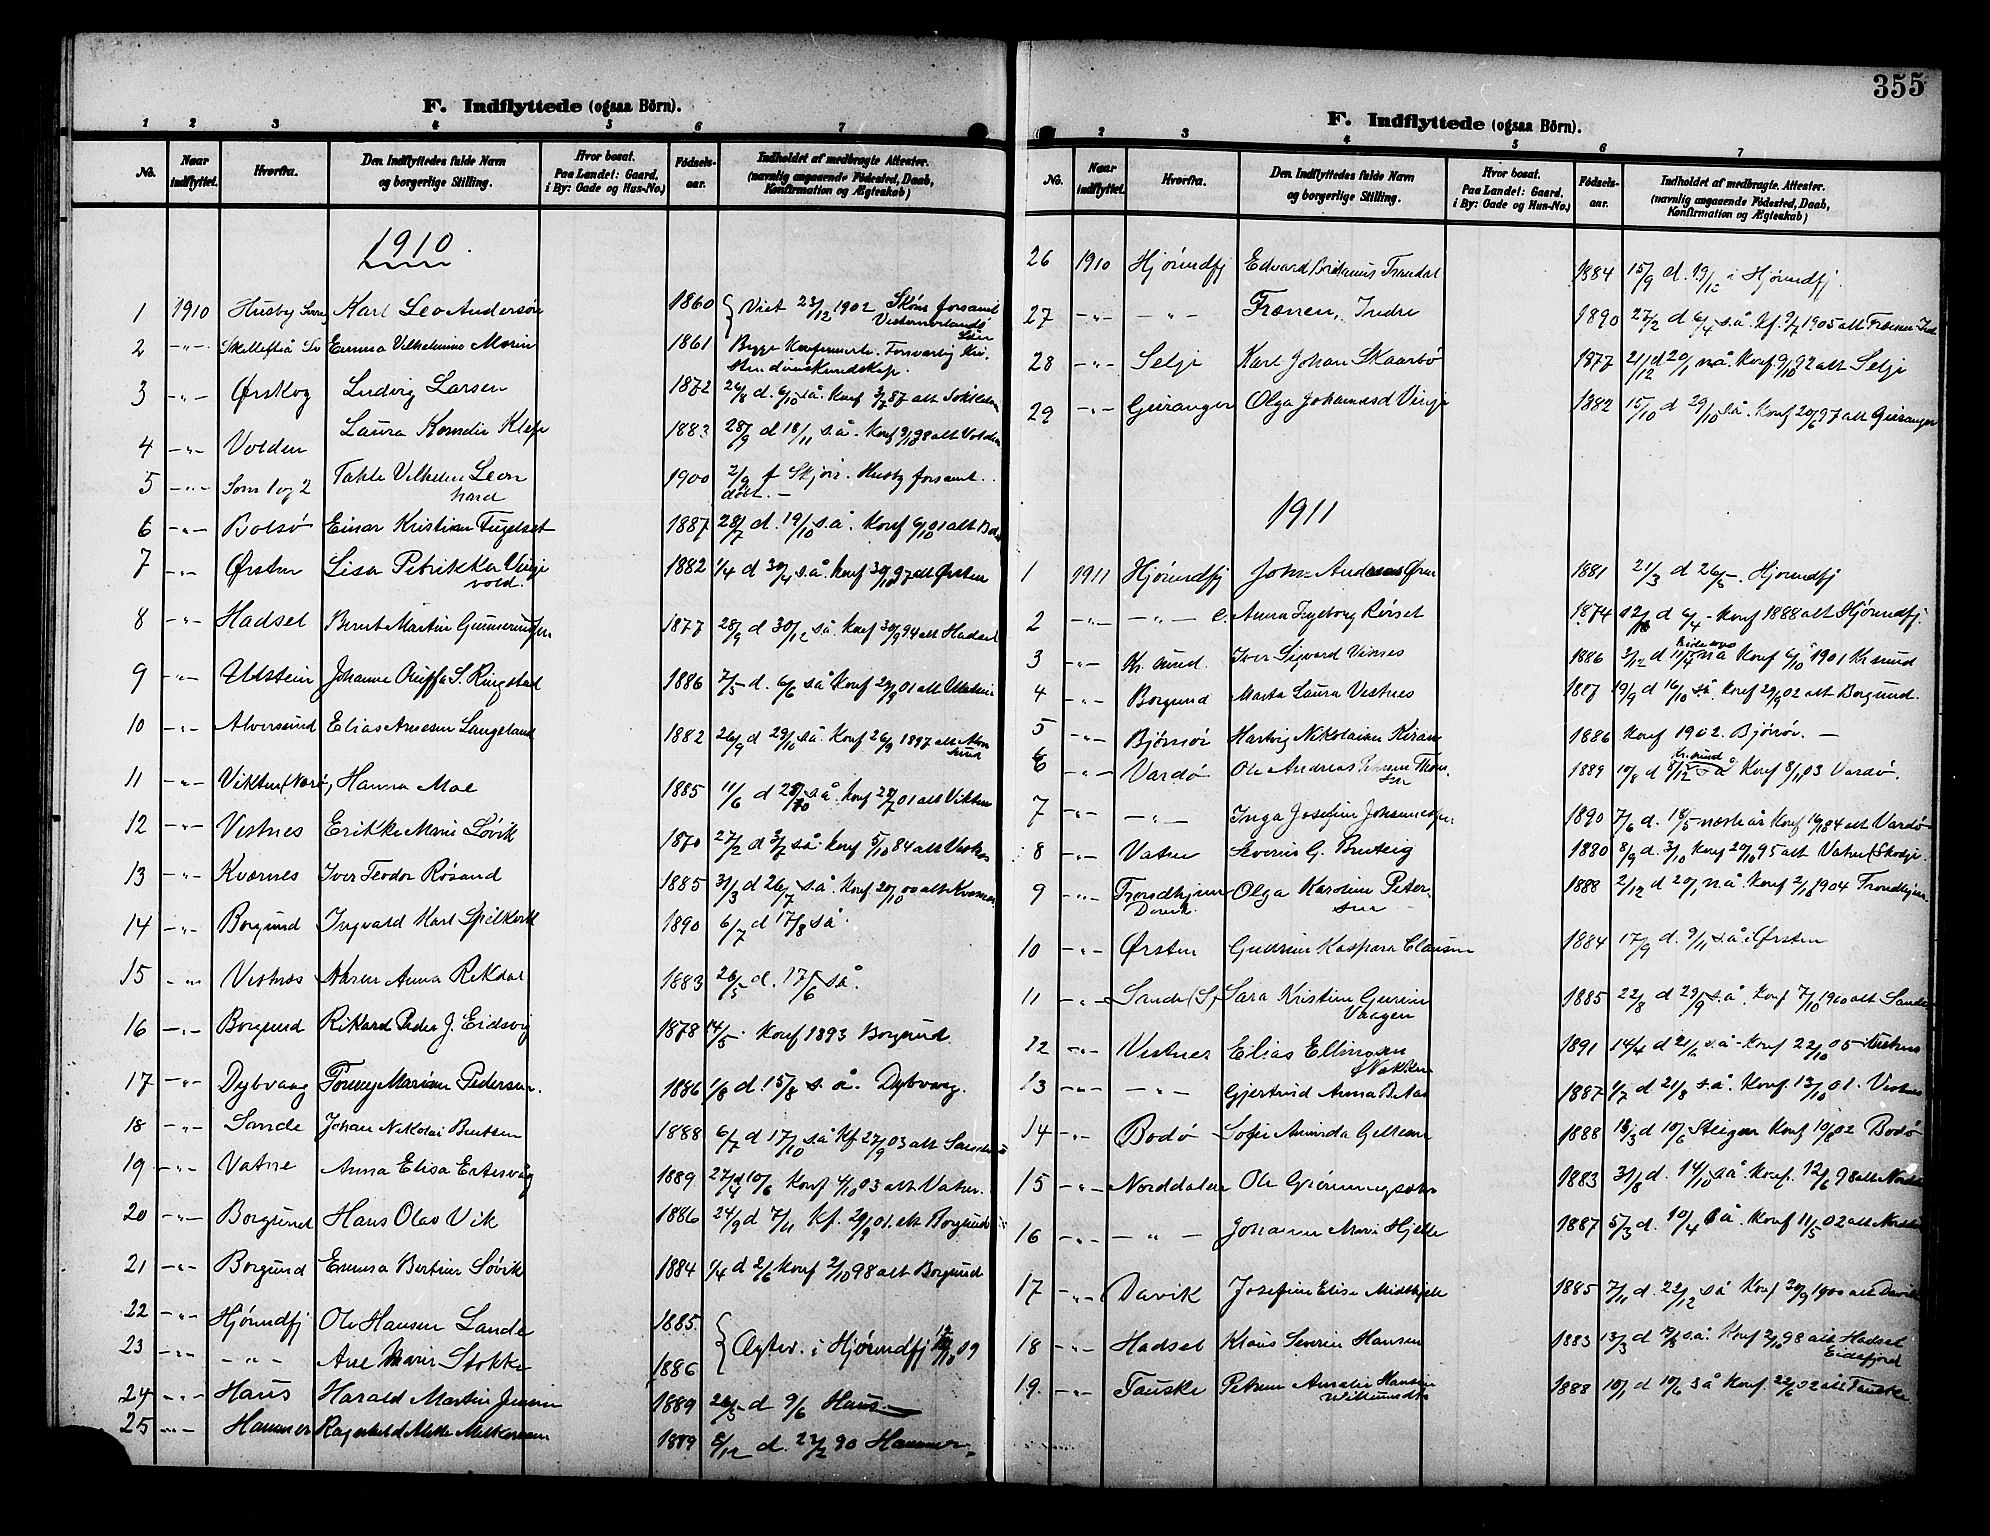 F. Indflyttede (ogsaa Börn).
1 2 3 4 5 6 7
No. Naar indflyttet. Hvorfra. Den Indflyttedes fulde Navn og borgerlige Stilling. Hvor bosat. Paa Landet: Gaard, i By: Gade og Hus-No.) Fødselsaar. Indholdet af medbragte Attester. (navnlig angaaende Födested, Daab, Konfirmation og Ægteskab)
1910.
1 1910 Husby Karl Leo Anderson 1860 Viet 23/12 1902 Sköns forsaml
Vesternorlands
Län
2 -"- Skellefteå Sv Emma Vilhelmina Morin 1861
3 -"- Ørskog Ludvig Larsen 1872 26/8 d. 6/10 så. Konf 3/7 87 alt
4 -"- Volden Laura Kornelie Klepp 1883 28/9 d 18/11 så. Konf 9/10 98 alt Volden
5 -"- Søn 1 og 2 Vilhelm Leon
hard 1900 2/9 f Husby forsaml.
døbt. -
6 -"- Bolsø Einar Kristian Fugelset 1887 28/7 d. 19/10 så. Konf 6/10 01 alt Bolsø
7 -"- Ørsten Lisa Petrikka
vold. 1882 1/4 d 30/4 så. Konf 97 alt Ørsten
8 -"- Hadsel Bernt Martin Gunneriussen 1877 28/9 d 30/12 så Konf 30/9 94 alt Hadsel
9 -"- Utstein Johanne S. Ringstad 1886 7/5 d. 6/6 så Konf 29/9 01 alt Utstein
10 -"- Alversund Elias Arnesen Langeland 1882 26/9 d 29/10 så. Konf 26/9 1897 alt Alver
sund
11 -"- Vikten (Nærø) Hanna Moe 1885 11/6 d så. Konf 01 alt Vikten
12 -"- Vestnes Erikke Marie Løvik 1870 27/2 d 3/7 så. Konf 5/10 84 alt Vestnes
13 -"- Kvernes Iver Teodor Røsand 1885 31/3 d 26/7 så. Konf 20/10 00 alt Kvernes
14 -"- Borgund Ingvald Karl Spilkevik 1890 6/7 d 17/8 så.
15 -"- Vestnes Karen Anna Rekdal 1883 26/5 d. 17/6 så.
16 -"- Borgund Rikard Peder J. Eidsvig 1878 14/5. Konf 1893 Borgund
17 -"- Dybvaag Fanny Marian Pedersen. 1886 1/8 d. 15/8 så. Dybvaag.
18 -"- Sande Johan Nikolai Bentsen 1888 6/7 d 17/10 så Kf. 27/9 03 alt Sande
19 -"- Vatne Anna Elisa Ertesvåg 1889 27/4 d 10/6 Konf 4/10 03 alt Vatne.
20 -"- Borgund Hans Olav Vik 1886 24/9 d 7/11 Kf. 29/9 01. alt Borgund
21 -"- Borgund Emma Bertine Løvik 1884 1/4 d 2/6 Konf 2/10 98 alt Borgund
22 -"- Hjørundfj Ole Hansen Lande 1885.
23 -"- -"- Ane Marie Stokke 1886 Ægtev. i Hjørundfj 09
24 -"- Haus Harald Martin Jensen 1889 26/3 d 9/6 Haus
25 -"- Hammer Ragnhild Mette 1889 8/12 d. 23/2 90 Hammer
355
F. Indflyttede (ogsaa Börn).
2 3 4 5 6 7
No. Naar indflyttet. Hvorfra. Den Indflyttedes fulde Navn og borgerlige Stilling. Hvor bosat. Paa Landet: Gaard, i By: Gade og Hus-No.) Fødselsaar. Indholdet af medbragte Attester. (navnlig angaaende Födested, Daab, Konfirmation og Ægteskab)
26 1910 Hjørundfj Edvard Trandal 1884 15/9 d. 19/10 i Hjørundfj.
27 -"- -"- Frænen, Indre 1890 27/2 d 6/4 så. Kf. 9/7 1905 alt Frænen Indre
28 -"- Selje Karl Johan Skaarbø 1877 21/12 d 20/1 nå Konf 9/10 92 alt Selje
29 -"- Geiranger Olga Johannesd Vinje 1882 15/10 d 29/10 så. Konf 20/6 97 alt Geiranger
1911
1 1911 Hjørundfj John Andersen Øien 1881 21/3 d 26/5. Hjørundfj
2 -"- -"- Anna Ingeborg Rørset 1874 d 6/4 - Konf 1888 alt Hjørundfj.
3 -"- Kr. sund. Iver Sigvard Vinnes 1886 3/12 d nå Konf 6/10 1901 Kr sund
4 -"- Borgund Marta Laura Vestnes 1887 19/9 d 16/10 så. Konf 29/9 02 alt Borgund.
5 -"- Bjørnør Hartvig Nikolaisen Kiran 1886 Konf 1902. Bjørnør. -
6 -"- Vardø Ole Andreas Thom
sen 1889 10/8 d 8/12 så Konf 8/11 03 Vardø.
Kr.sund
7 -"- -"- Inga Josefine Johannessen 1890 7/6 d. 18/5 næste år Konf alt Vardø
8 -"- Vatne Severin G. Brataas 1880 8/9 d. 3/10 Konf 20/10 95 alt Vatne (Skodje
9 -"- Trondhjem
Domk. Olga Karoline Peter
sen 1888 2/12 d 20/1 nå. Konf 1904 Trondhjem
10 -"- Ørsten Gudrun Kaspara Clausen 1884 17/9 d. 9/11 så i Ørsten
11 -"- Sande (S) Sara Kristine Gurine
Vaagen 1885 22/8 d 29/9 så. Konf 7/10 1900 alt Sande
12 -"- Vestnes Elias Ellingsen
Nakken 1891 14/4 d 21/6 så - Konf 22/10 05 - Vestnes
13 -"- -"- Gjertrud Anna B. Aas 1887 1/7 d 21/8 så. Konf. 13/10 01. Vestnes
14 -"- Bodø Sofie Aminda 1888 18/3 d 10/6 Steigen Konf 10/8 02 Bodø
15 -"- Norddalen Ole 1883 31/8 d. 14/10 så Konf. 12/6 98 alt Norddal
16 -"- -"- Johanne Marie Hjelle 1887 5/3 d. 10/4 så. Konf 11/5 02 alt Norddal
17 -"- Davik Josefine Elise Midthjell 1885 7/11 d. 22/12 så Konf 30/9 1900 alt Davik
18 -"- Hadsel Klaus Severin Hansen 1883 13/3 d så. Konf 2/10 98 alt Hadsel
Eidsfjord
19. -"- Fauske Petrine Amalie Hansen
1888 10/1 d 10/6 så Konf. 22/6 02 alt Fauske